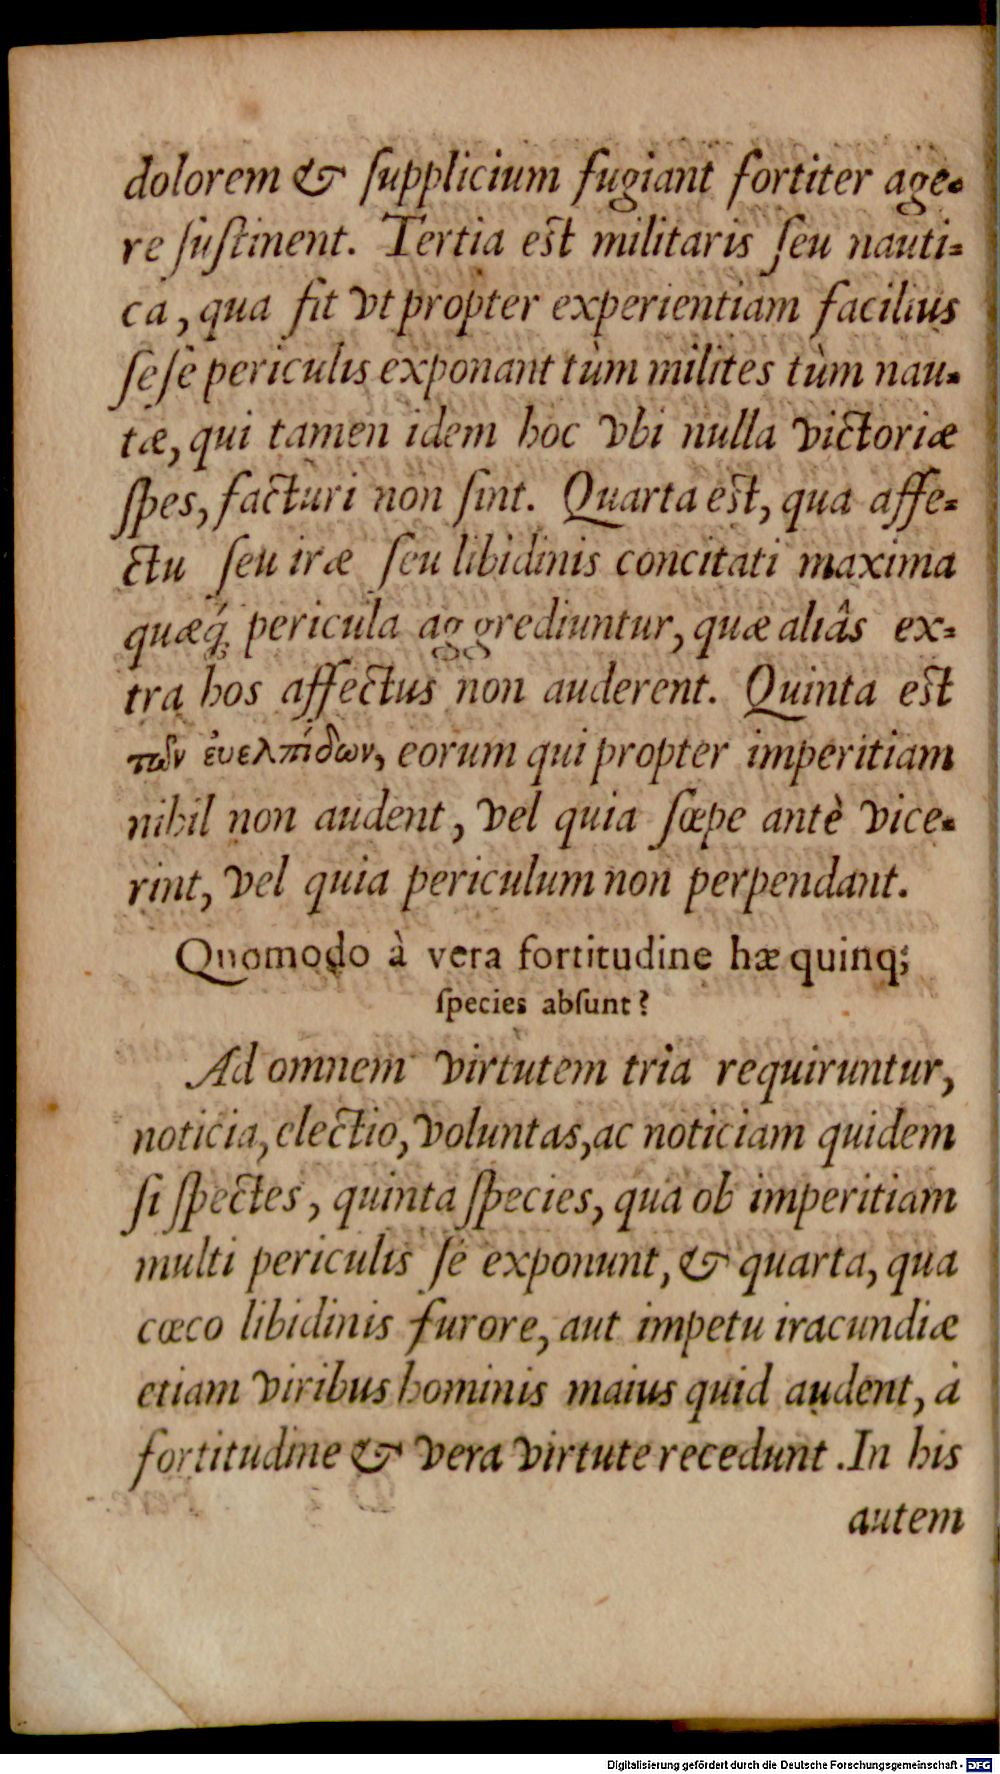 dolorem & ſupplicium fugiant fortiter age-
re ſuſtinent. Tertia eſt militaris ſeu nauti-
ca, qua fit vt propter experientiam facilius
ſeſe periculis exponant tùm milites tùm nau-
tæ, qui tamen idem hoc vbi nulla victoriæ
ſpes, facturi non ſint. Quarta eſt, qua affe-
ctu ſeu iræ ſeu libidinis concitati maxima
quæq́; pericula aggrediuntur, quæ aliâs ex-
tra hos affectus non auderent. Quinta eſt
τῶν ἐυελπίδων, eorum qui propter imperitiam
nihil non audent, vel quia ſæpe antè vice-
rint, vel quia periculum non perpendant.
Quomodo à vera fortitudine hæ quinq;
ſpecies abſunt?
Ad omnem virtutem tria requiruntur,
noticia, electio, voluntas, ac noticiam quidem
ſi ſpectes, quinta ſpecies, qua ob imperitiam
multi periculis ſe exponunt, & quarta, qua
cæco libidinis furore, aut impetu iracundiæ
etiam viribus hominis maius quid audent, à
fortitudine & vera virtute recedunt. In his
autem
Digitalisierung gefördert durch die Deutsche Forschungsgemeinschaft - DFG